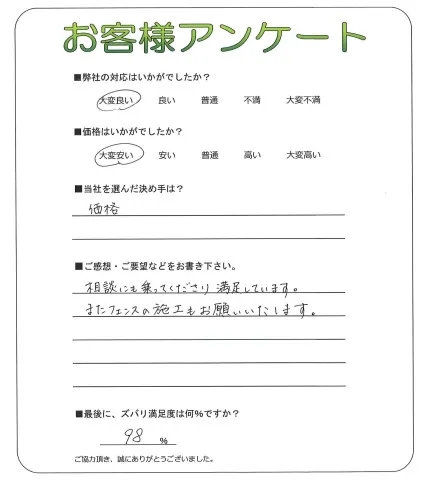 お客様アンケート
■弊社の対応はいかがでしたか？
大変良い 良い 普通 不満 大変不満
■価格はいかがでしたか？
大変安い 安い 普通 高い 大変高い
■当社を選んだ決め手は？
価格
■ご感想・ご要望などをお書き下さい。
相談にも乗ってくださり満足しています。
またフェンスの施工もお願いいたします。
■最後に、ズバリ満足度は何%ですか？
98 %
ご協力頂き、誠にありがとうございました。